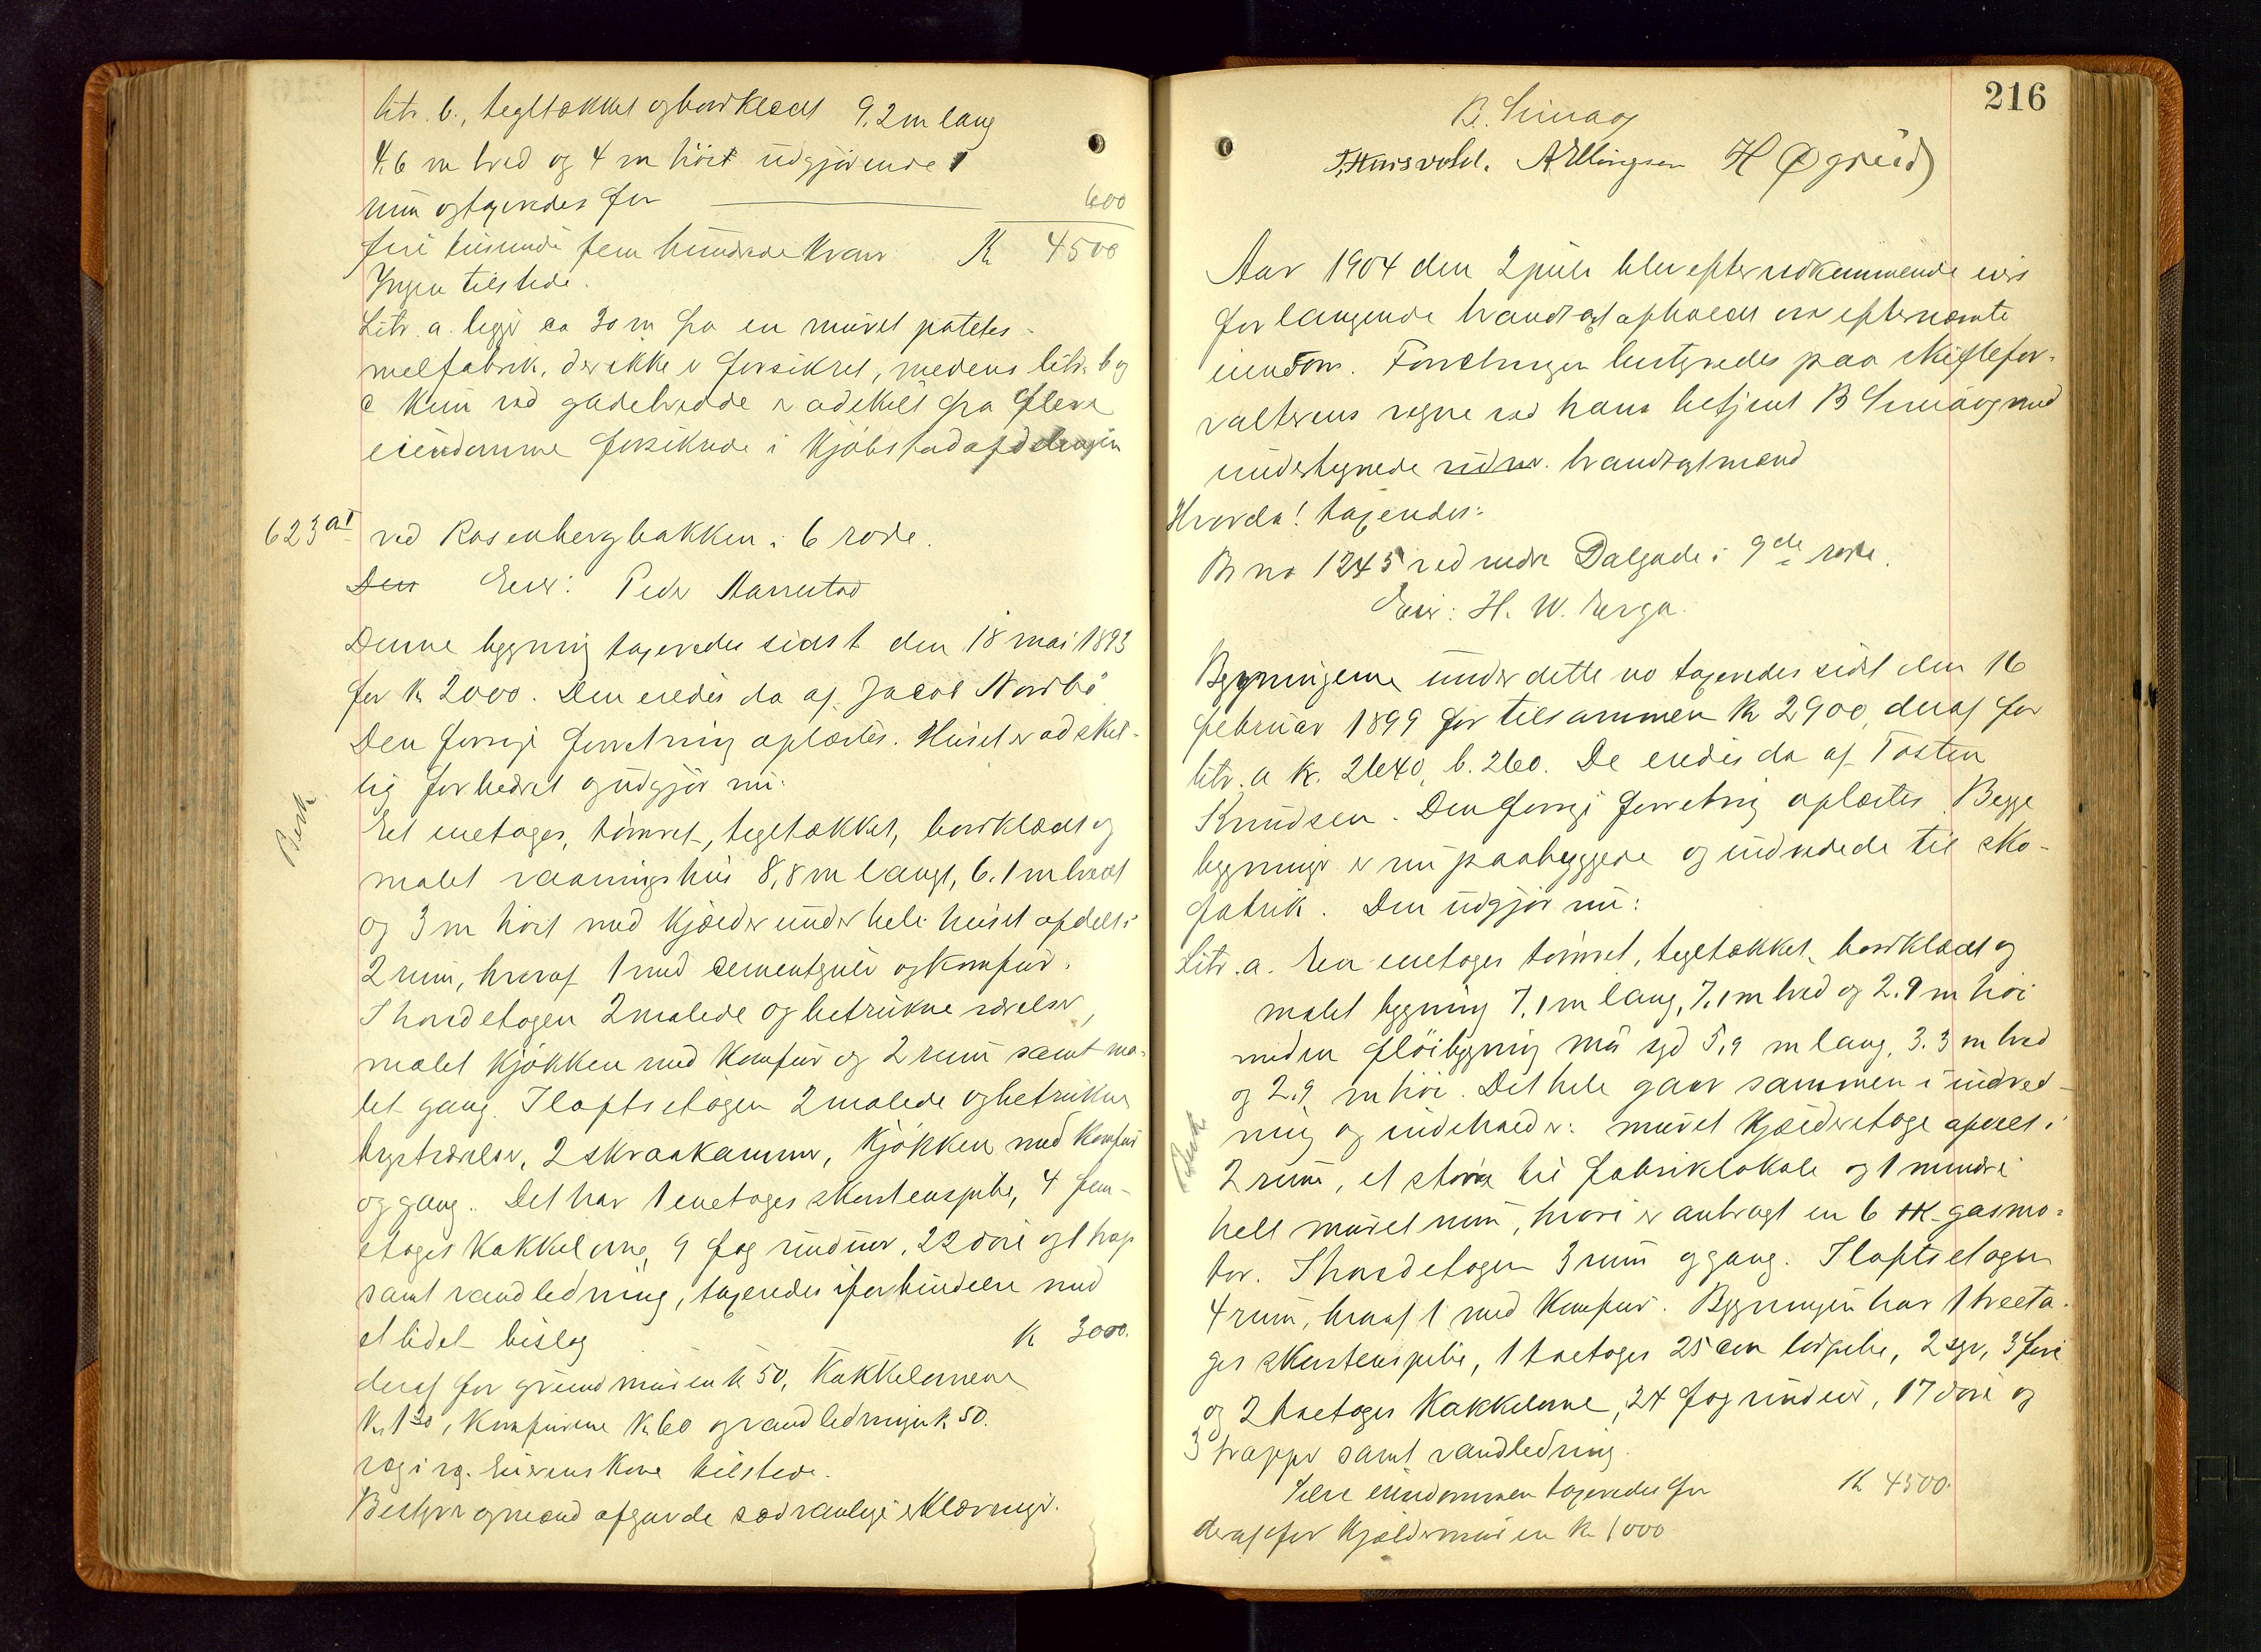 litr. b., tegltækket og bordklædt 9,2 m lang
4,6 m bred og 4 m höit udgjörende 1
rum og taxeredes for 600
fire tusinde fem hundrede kroner Kr 4500
Ingen tilstede.
Litr. a. ligger ca 30 m fra en muret potetes-
melfabrik, der ikke er forsikret, medens litr. b og
c kun ved gadebredde er adskilt fra flere
eiendomme forsikrede i Kjöbstadafdelingen
623 a1 ved Rosenbergbakken i 6 rode.
Den Eier: Peder
Denne bygning taxeredes sidst den 18 mai 1893
for kr 2000. Den eiedes da af Jacob Nordbö
Den forrige forretning oplæstes. Huset er adskil-
lig forbedret og udgjör nu:
Besk
Et enetages, tömret, tegltækket, bordklædt og
malet vaaningshus 8,8 m langt, 6.1 m bredt
og 3 m höit med kjælder under hele huset afdelt i
2 rum, hvoraf 1 med cementgulv og komfur.
I hovedetagen 2 malede og betrukne værelser,
malet kjökken med komfur og 2 rum samt ma-
let gang. I loftsetagen 2 malede og betrukne
kvistværelser, 2 skraakammer, kjökken med komfur
og gang. Det har 1 enetages skorstenspibe, 4 fem-
etages kakkelovne, 9 fag vinduer, 22 döre og 1 trap
samt vandledning, taxeredes i forbindelse med
et lidet bislag Kr 3000.
deraf for grundmuren kr 50, Kakkelovnene
Kr. 130, komfurene kr 60 og vandledningen kr 50.
Eierens kone tilstede.
Bestyrer og mænd afgav de sædvanlige erklæringer.
216
B. Sunaag
T. Huisvold. A Ellingsen H Øgreid
Aar 1904 den 2 juli blev efter vedkommende eiers
forlangende brandtagt afholdt over efternævnte
eiendom. Forretningen bestyredes paa skiftefor-
valterens vegne ved hans betjent B Sunaag med
undertegnede brandtagtmænd
Hvorda! taxeredes:
Br no 1245 ved nedre Dalgade i 9de rode.
Eier: H. W. Erga.
Bygningerne under dette no taxeredes sidst den 16
februar 1899 for tilsammen Kr 2900, deraf for
litr. a kr. 2640, b. 260. De eiedes da af Tosten
Knudsen. Den forrige forretning oplæstes. Begge
bygninger er nu paabyggede og indredede til sko-
fabrik. Den udgjör nu:
Litr. a. En enetages tömret, tegltækket, bordklædt og
malet bygning 7,1 m lang, 7,1 m bred og 2.9 m höi
med en flöibygning mod syd 5,9 m lang, 3.3 m bred
og 2,9 m höi. Det hele gaar sammen i indred-
Besk
ning og indeholder: muret kjælderetage afdelt i
2 rum, et större til fabriklokale og 1 mindre
helt muret rum, hvori er anbragt en 6 HK. gasmo-
tor. I hovedetagen 3 rum og gang. I loftsetagen
4 rum, hvoraf 1 med komfur. Bygningen har 1 treeta-
ges skorstenspibe, 1 treetages 25 cm lerpibe, 2 syv, 3 fire
og 2 treetages kakkelovne, 24 fag vinduer, 17 döre og
3 trapper samt vandledning.
Hele eiendommen taxeredes for Kr 4500.
deraf for kjældermuren kr 1000